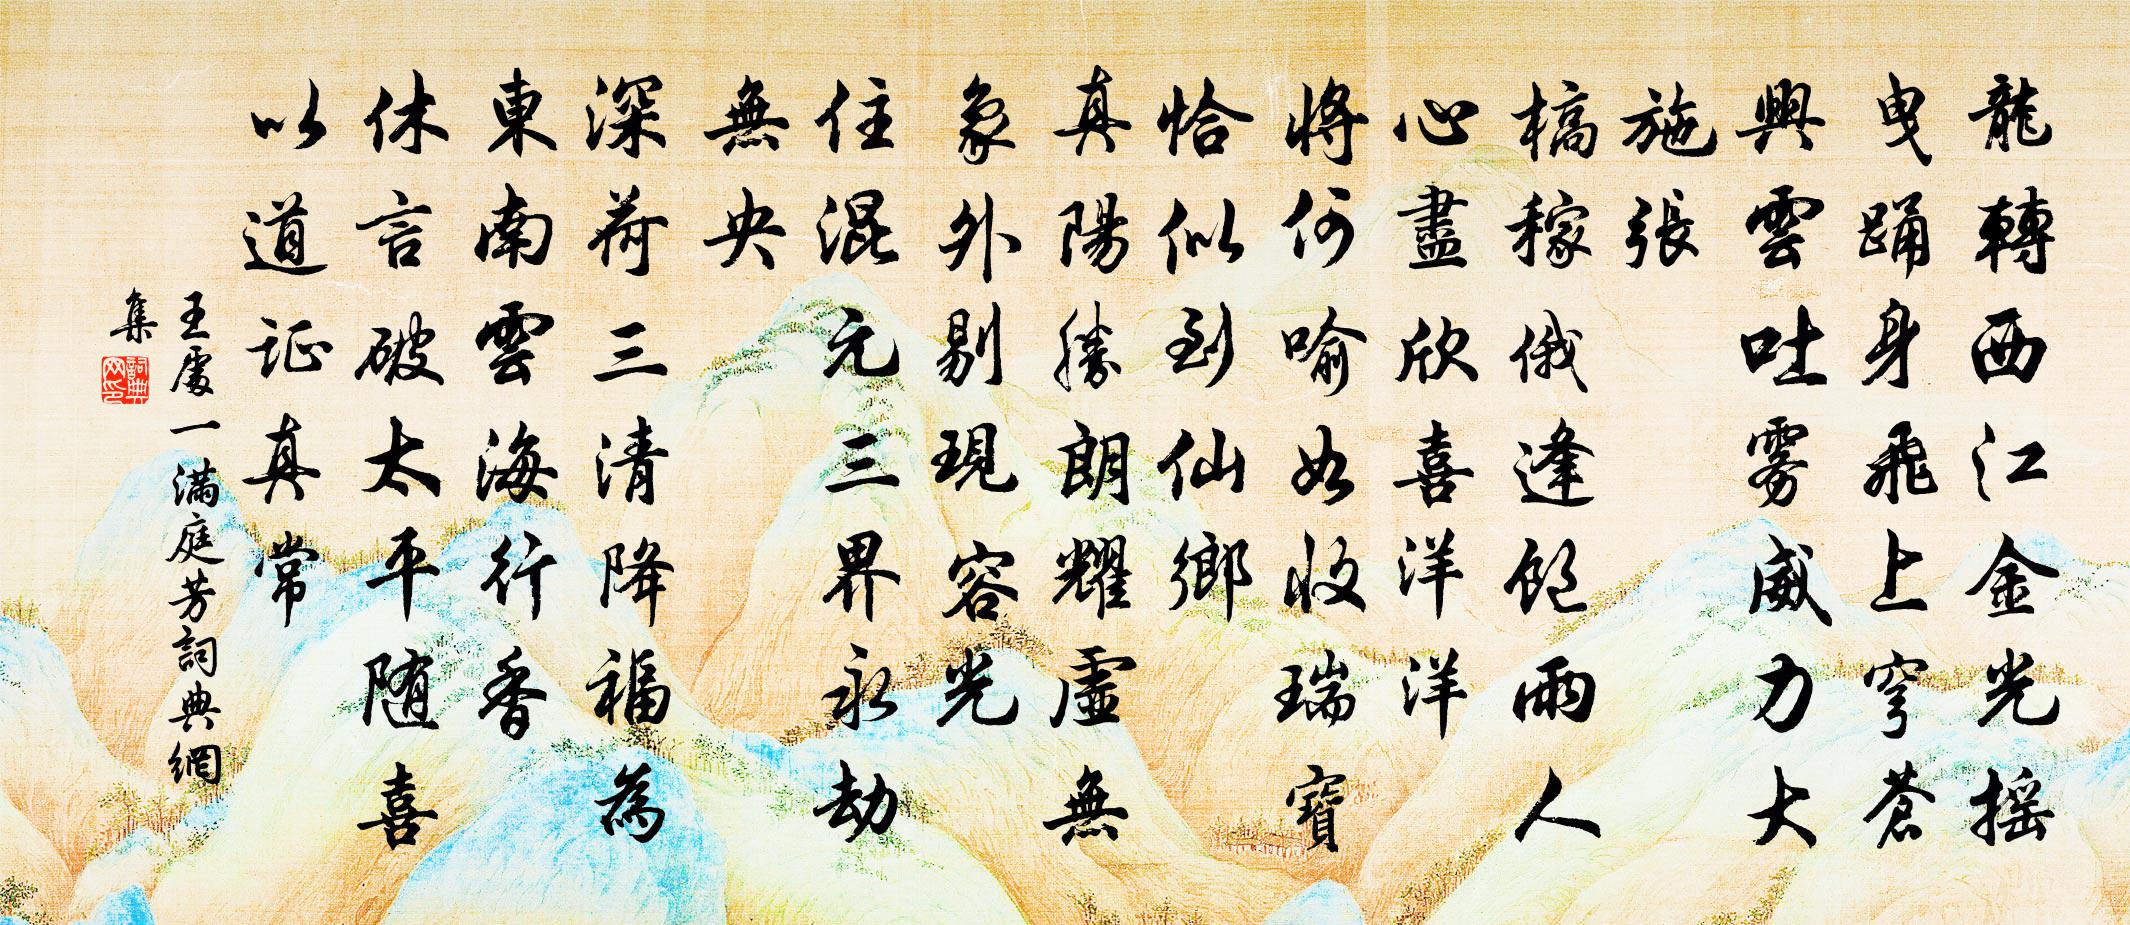 龍轉西江金光摇
曳踊身飛上穹蒼
興雲吐雾威力大
施張
槁稼俄逢飽雨人
心盡欣喜洋洋
將何喻如收瑞寶
恰似到仙鄉
真陽勝朗耀虛無
象外剔現容光
住混元三界永劫
無央
深荷三清降福為
東南雲海行香
休言破太平随喜
以道证真常
王處一满庭芳詞典網
集
詞典